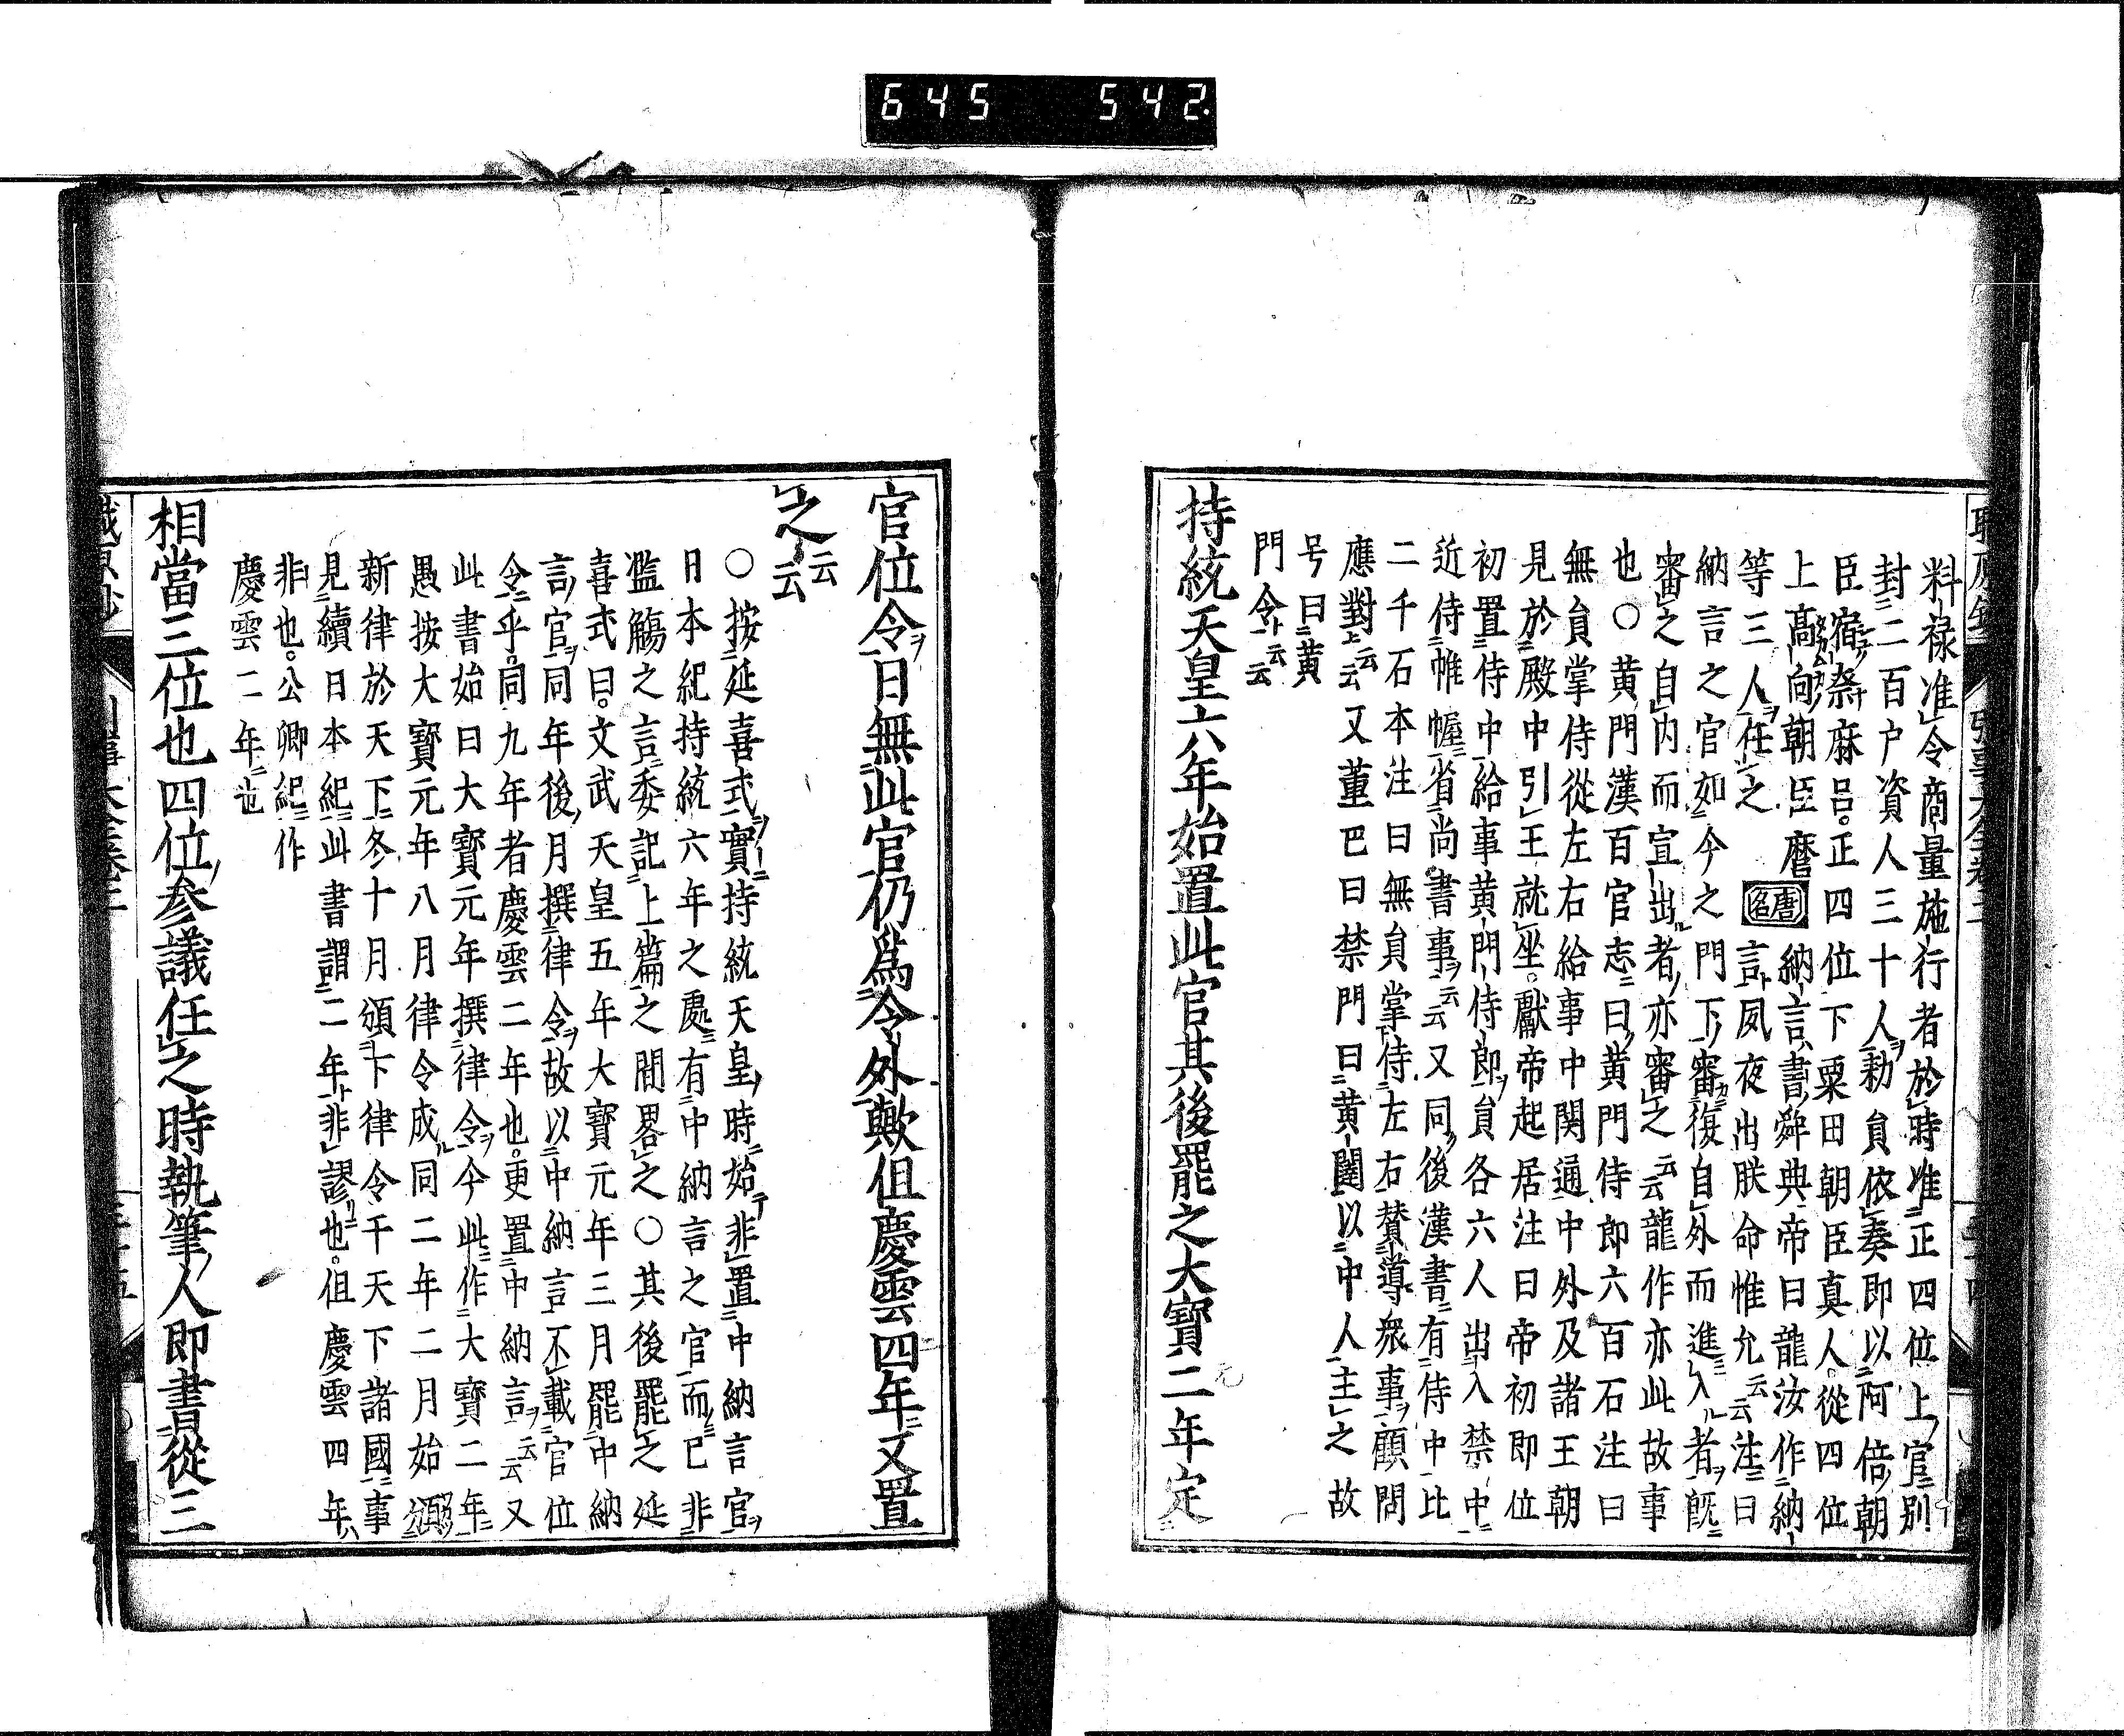 645 542
料禄准令商量施行者於時准正四位上官別
封二百户資人三十人勅負依奏即以阿倍朝
臣宿奈麻呂正四位下粟田朝臣真人從四位
上高向朝臣麿 唐名 納言書舜典帝曰龍汝作納
等三人任之 言夙夜出朕命惟允云云注曰
納言之官如今之門下審復自外而進入者既
審之自内而宣出者亦審之云云龍作亦此故事
也○黄門漢百官志曰黄門侍郎六百石注曰
無負掌侍從左右給事中関通中外及諸王朝
見於殿中引王就坐獻帝起居注曰帝初即位
初置侍中給事黄門侍郎負各六人出入禁中
近侍帷幄省尚書事云云又同後漢書有侍中比
二千石本注曰無負掌侍左右賛導衆事顧問
應對云云又董巴曰禁門曰黄闥以中人主之故
号曰黄
門令云云
持統天皇六年始置此官其後罷之大寶二年定
官位令日無此官仍爲令外歟但慶雲四年又置
之云云
○按延喜式實持統天皇時始非置中納言官
日本紀持統六年之處有中納言之官而已非
濫觴之言委記上篇之間畧之○其後罷之延
喜式曰文武天皇五年大寶元年三月罷中納
言官同年後月撰律令故以中納言不載官位
令乎同九年者慶雲二年也更置中納言云云又
此書始曰大寶元年撰律令今此作大寶二年
愚按大寶元年八月律令成同二年二月始頒
新律於天下冬十月頒下律令干天下諸國事
見續日本紀此書謂二年非謬也但慶雲四年
非也公卿紀作
慶雲二年也
相當三位也四位参議任之時執筆人即書從三